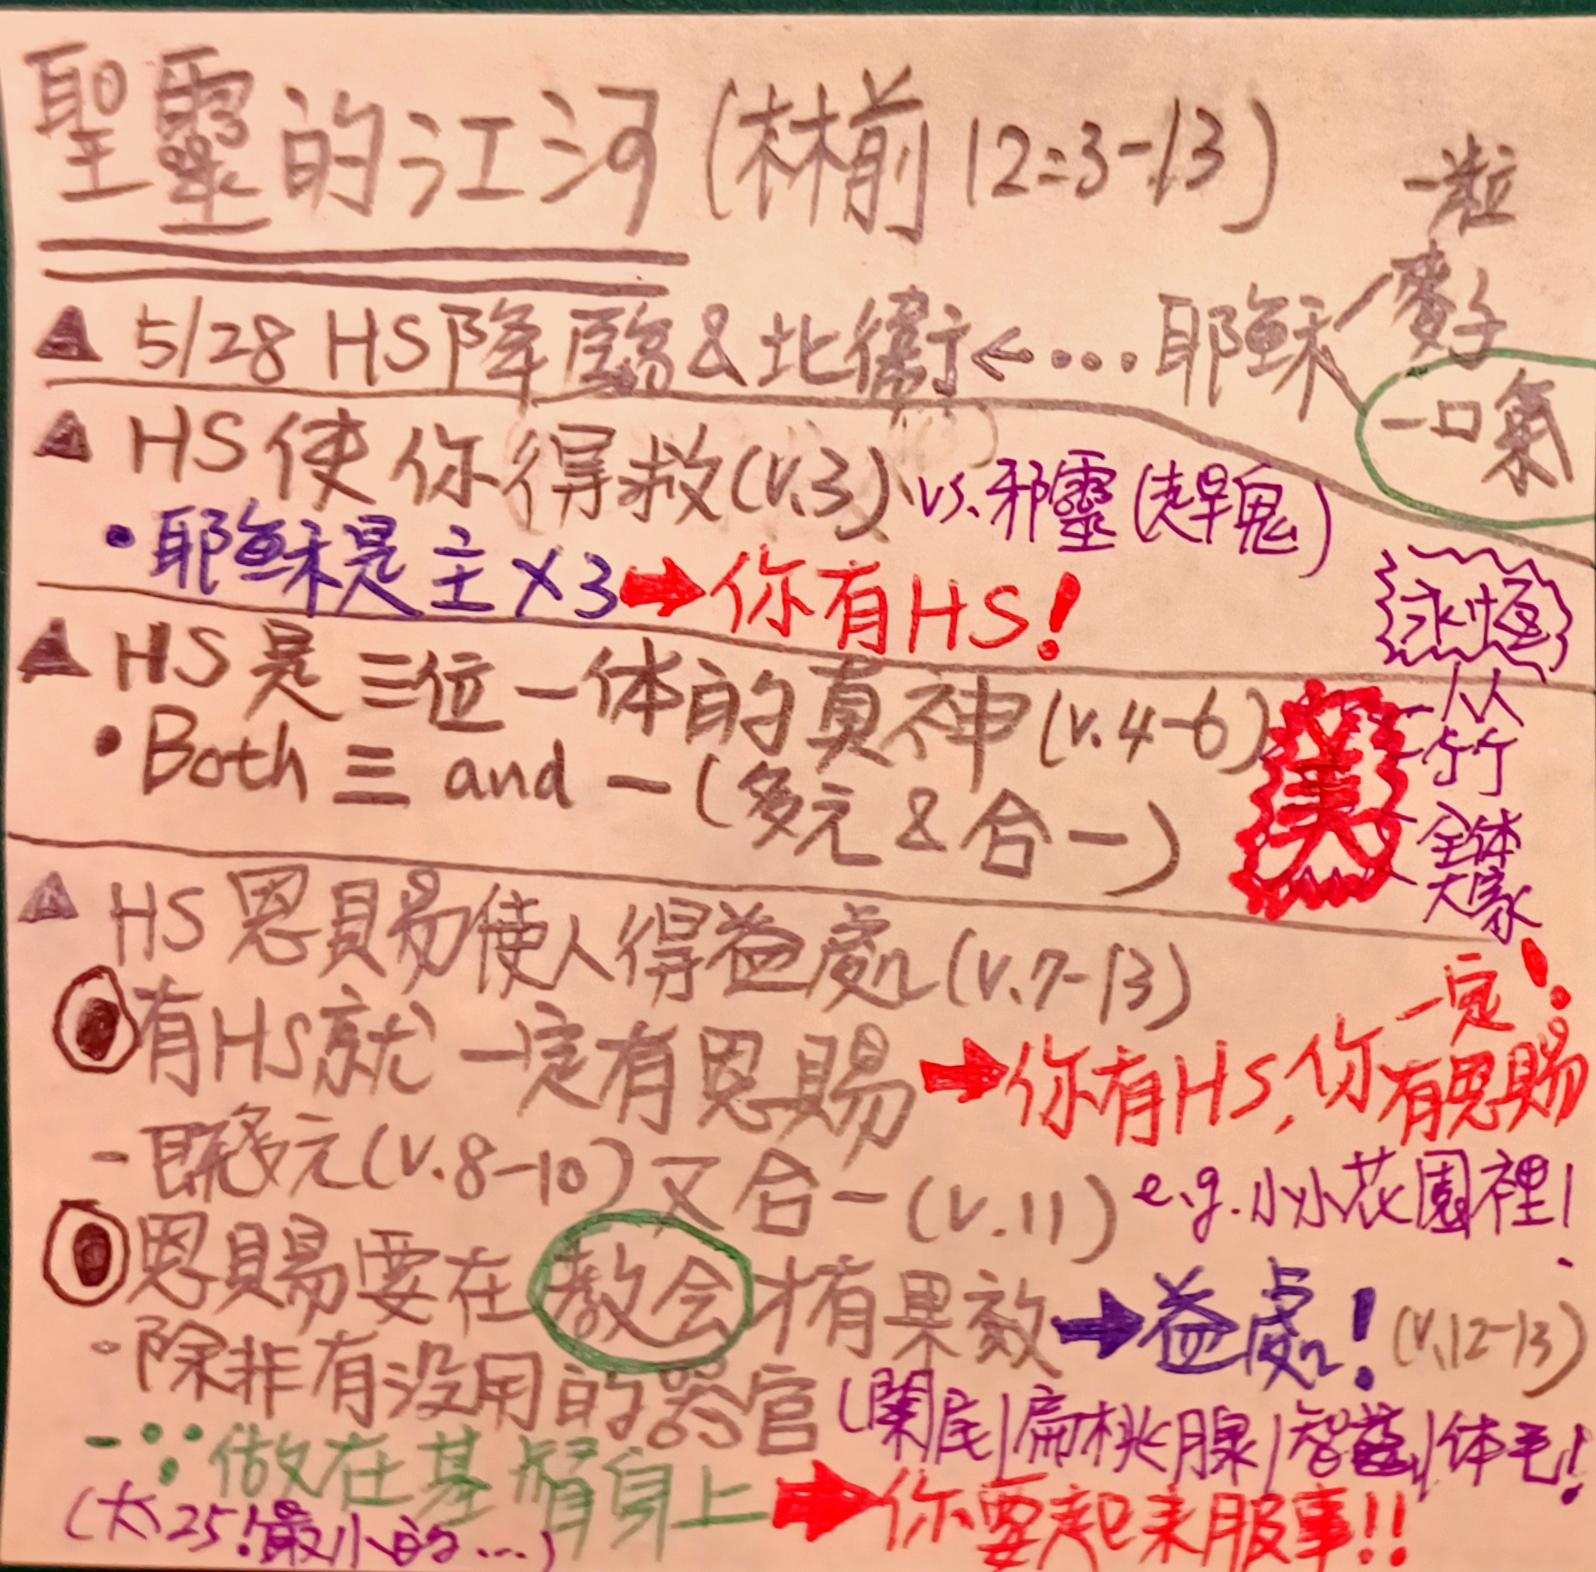 聖靈的江河 (林前 12:3-13)
一粒
麥子
▲ 5/28 HS降臨&北衛 <···· 耶穌
一口氣
▲ HS使你得救(v.3) vs.邪靈(趕鬼)
• 耶穌是主×3 ➡ 你有HS!
永恆
▲ HS是三位一体的真神(v.4-6)
• Both 三 and 一 (多元&合一)
美
人人
行行
全体
大家
▲ HS恩賜使人得益處(v.7-13)
有HS就一定有恩賜 ➡ 你有HS,你一定有恩賜!
- 既多元(v.8-10)又合一(v.11) e.g.小小花園裡
恩賜要在教会才有果效 ➡ 益處! (v.12-13)
- 除非有没用的器官 (闌尾|扁桃腺|智齒|体毛!)
- ∵ 做在基督身上 ➡ 你要起來服事!!
(太25!最小的...)